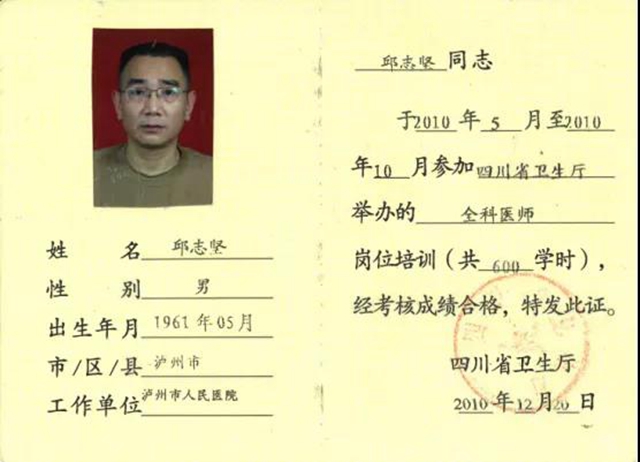 姓名 邱志坚
性别 男
出生年月 1961年05月
市/区/县 泸州市
工作单位 泸州市人民医院
邱志坚同志
于2010年5月至2010
年10月参加四川省卫生厅
举办的 全科医师
岗位培训（共600学时），
经考核成绩合格，特发此证。
四川省卫生厅
2010年12月20日